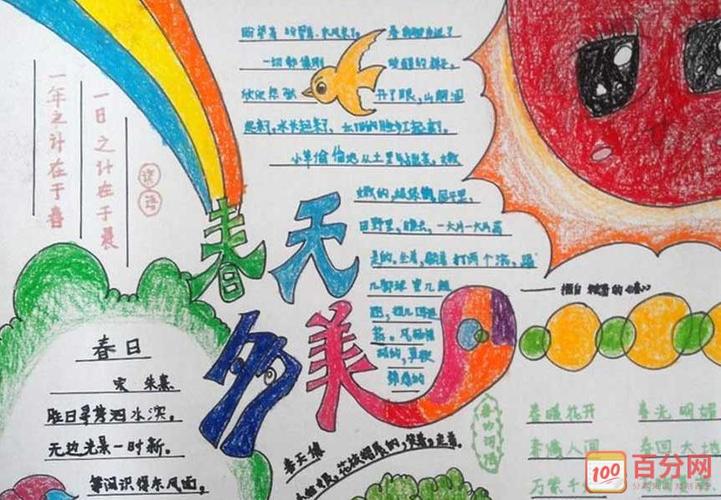 一年之计在于春
一日之计在于晨
谚语
盼望着 盼望着 东风来了。春
一切都像刚
睡醒的样子
开了眼,山朗润
起来了,水长起来了,太阳的脸红起来了。
小草偷偷地从土里钻出来,嫩
嫩的,绿绿的
田野里,瞧去,一大片一大片满
是的。坐着,躺着 打两个滚,踢
几脚球 赛几趟
春天多美
春日
宋 朱熹
胜日寻芳泗水滨。
无边光景一时新。
等闲识得东风面。
春天像
春的词语
春暖花开
春光明媚
春满人间
春回大地
万紫千
100
百分网